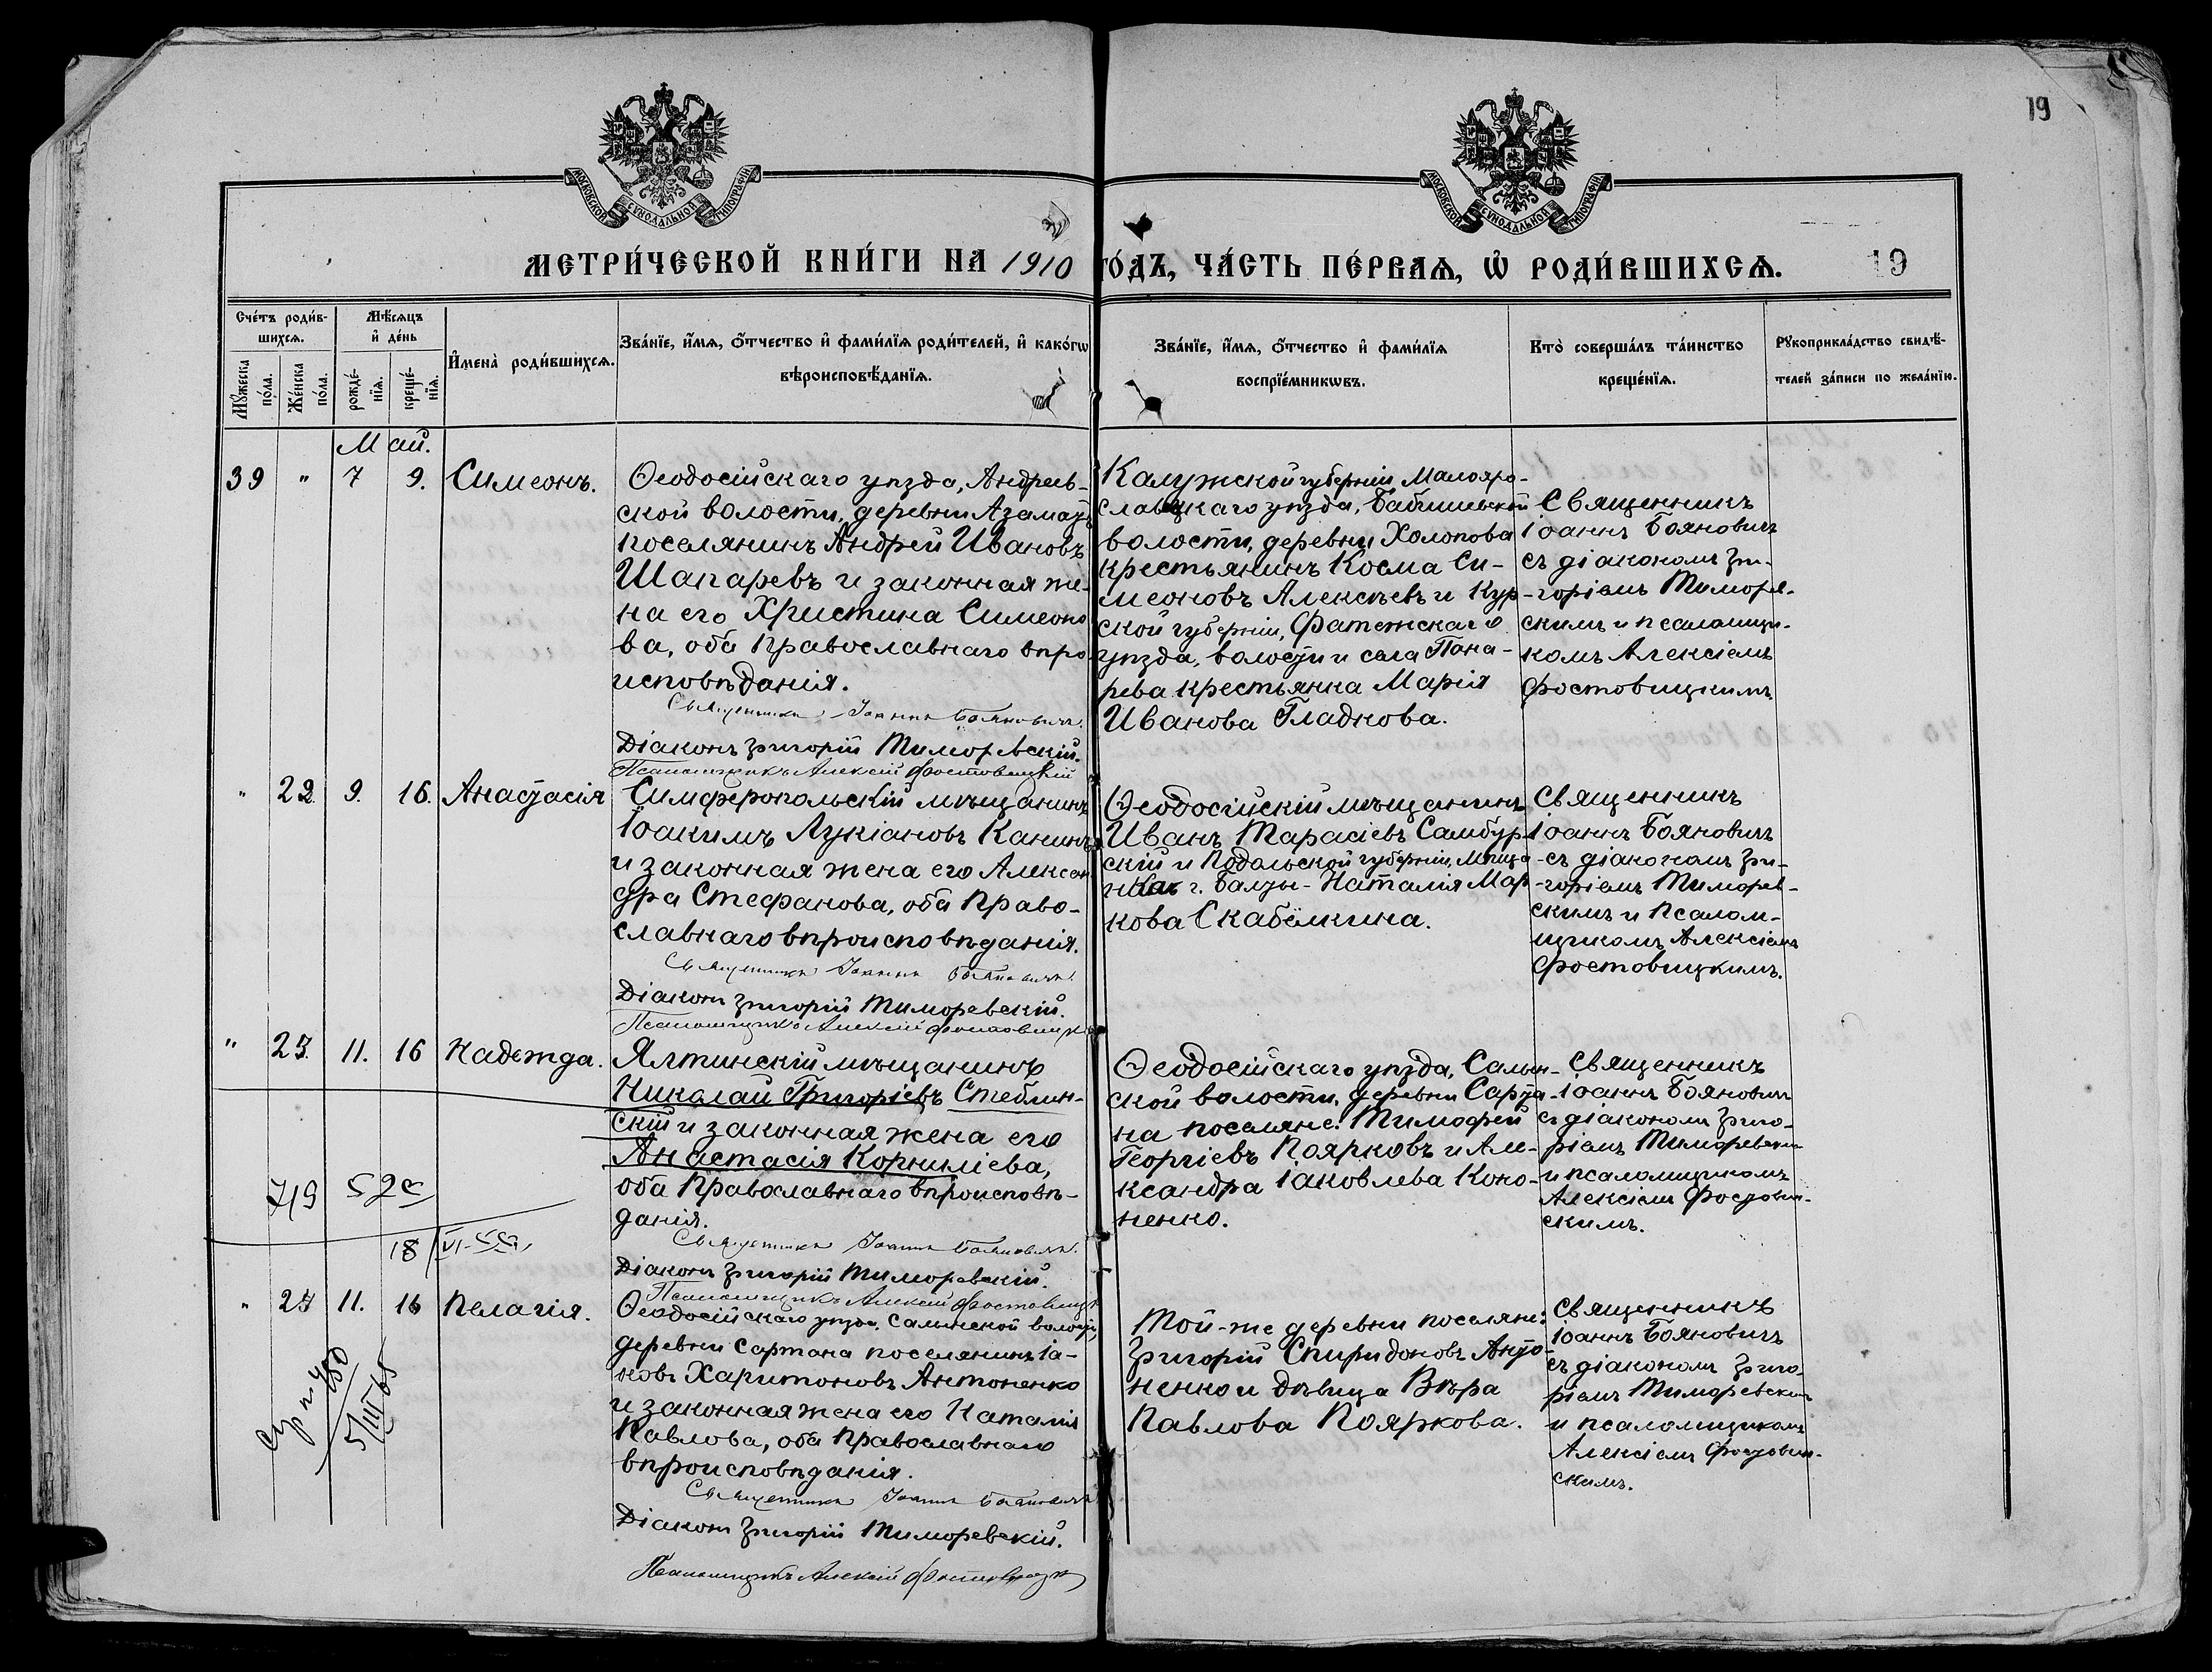 19
МОСКОВСКОЙ СѴНОДАЛЬНОЙ ТИПОГРАФІИ
МОСКОВСКОЙ СѴНОДАЛЬНОЙ ТИПОГРАФІИ
МЕТРИ́ЧЕСКОЙ КНИ́ГИ НА 1910 ГО́ДЪ, ЧА́СТЬ ПЕ́РВАѦ, Ѽ РОДИ́ВШИХСѦ. 19
Сче́тъ роди́в-
шихсѧ.
Мꙋ́жеска по́ла.
Же́нска по́ла.
Мѣ́сѧцъ
и҆ де́нь
рожде́-нїѧ.
креще́-нїѧ.
И҆мена̀ роди́вшихсѧ.
Зва́нїе, и҆́мѧ, ѻ҆́тчество и҆ фами́лїѧ роди́телей, и҆ како́гѡ
вѣроисповѣ́данїѧ.
Зва́нїе, и҆́мѧ, ѻ҆́тчество и҆ фами́лїѧ
воспрїе́мникѡвъ.
Кто̀ соверша́лъ та́инство
креще́нїѧ.
Рꙋкоприкла́дство свидѣ́-
телей за́писи по жела́нїю.
Май.
39 " 7 9. Симеонъ.
Ѳеодосійскаго уѣзда, Андреев-
ской волости, деревни Азамат
поселянинъ Андрей Ивановъ
Шапаревъ и законная же-
на его Христина Симеоно
ва, оба Православнаго вѣро-
исповѣданія.
Священникъ Іоаннъ Бояновичъ.
Діаконъ Григорій Тиморевскій.
Псаломщикъ Алексій Фростовицкій
Калужской губерніи, Малояро-
славецкаго уѣзда, Бабишевской
волости, деревни Холопова
крестьянинъ Косма Си-
меоновъ Алексѣевъ и Кур-
ской губерніи, Фатежскаго
уѣзда, волости и села Пана-
рева крестьянка Марія
Иванова Гладкова.
Священникъ
Іоаннъ Бояновичъ
съ діакономъ Гри-
горіемъ Тиморев-
скимъ и псаломщи-
комъ Алексіемъ
Фростовицкимъ
" 22. 9. 16. Анастасія
Симферопольскій мѣщанинъ
Іоакимъ Лукіановъ Канинъ
и законная жена его Алексан
дра Стефанова, оба Право-
славнаго вѣроисповѣданія.
Священникъ Іоаннъ Бояновичъ.
Діаконъ Григорій Тиморевскій.
Псаломщикъ Алексій Фростовицкій
Ѳеодосійскій мѣщанинъ
Иванъ Тарасіевъ Самбур-
скій и Подольской губерніи, мѣща
нка г. Балты - Наталія Мар-
кова Скабёлкина.
Священникъ
Іоаннъ Бояновичъ
съ діакономъ Гри-
горіемъ Тиморев-
скимъ и Псалом-
щикомъ Алексіемъ
Фростовицкимъ.
" 23. 11. 16 Надежда.
Ялтинскій мѣщанинъ
Николай Григоріевъ Стеблин-
скій и законная жена его
Анастасія Корниліева,
оба Православнаго вѣроисповѣ-
данія.
Священникъ Іоаннъ Бояновичъ.
Діаконъ Григорій Тиморевскій.
Псаломщикъ Алексій Фростовицк
Ѳеодосійскаго уѣзда, Салын-
ской волости, деревни Сарта-
на поселяне: Тимофей
Георгіевъ Поярковъ и Але-
ксандра Іаковлева Коно-
ненко.
Священникъ
Іоаннъ Бояновичъ
съ діакономъ Григо-
ріемъ Тиморевским
и псаломщикомъ
Алексіемъ Фростовиц-
скимъ.
719 52
18/VI-
" 23 11. 16 Пелагія.
Ѳеодосійскаго уѣзда, Салынской волости,
деревни Сартана поселянинъ Іа-
ковъ Харитоновъ Антоненко
и законная жена его Наталія
Павлова, оба Православнаго
вѣроисповѣданія.
Священникъ Іоаннъ Бояновичъ
Діаконъ Григорій Тиморевскій.
Псаломщикъ Алексій Фростовицк
Той-же деревни поселяне:
Григорій Спиридоновъ Анто-
ненко и дѣвица Вѣра
Павлова Пояркова.
Священникъ
Іоаннъ Бояновичъ
съ діакономъ Григо-
ріемъ Тиморевским
и псаломщикомъ
Алексіемъ Фростовиц-
скимъ.
450
5/III 65